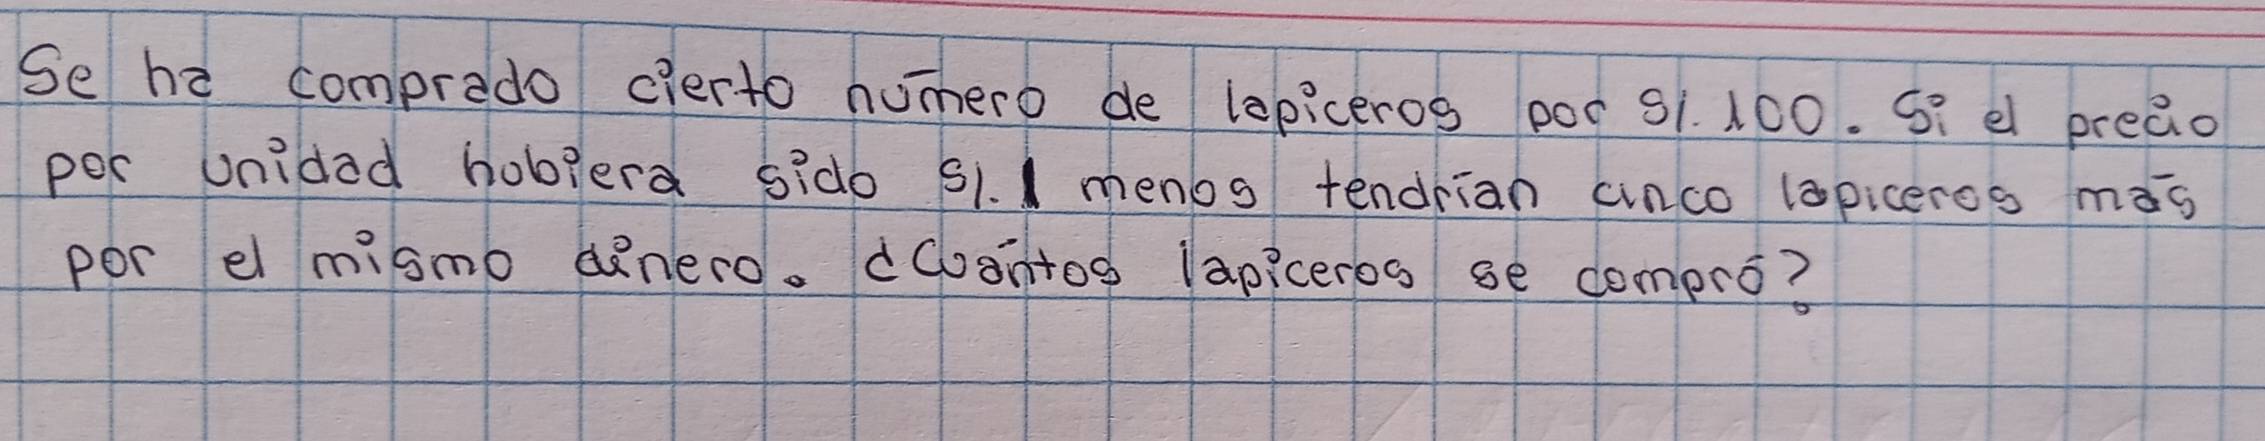 Se ha comprado cierto número de lapiceros por S/. 100. Si el precio
por unidad hubiera sido S/. 1 menos tendrían cinco lapiceros más
por el mismo dinero. ¿Cuántos lapiceros se compró?